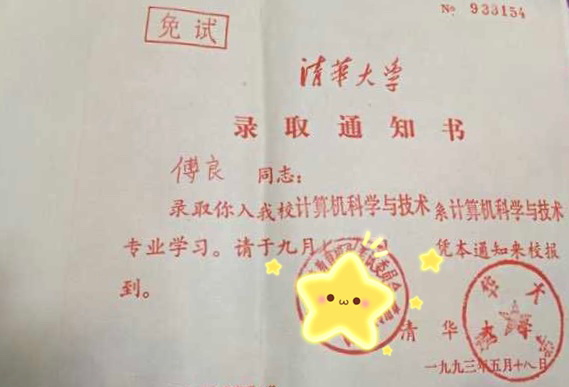 免试
№ 933154
清華大学
录取通知书
傅良 同志:
录取你入我校计算机科学与技术系计算机科学与技术
专业学习。请于九月七 凭本通知来校报
到。
清华大学
一九九三年五月十八日